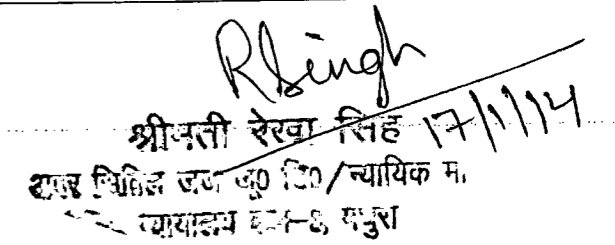 RSingh
श्रीमती रेखा सिंह 17/1/14
अपर सिविल जज जू0 डि0/न्यायिक म.
न्यायालय मथुरा